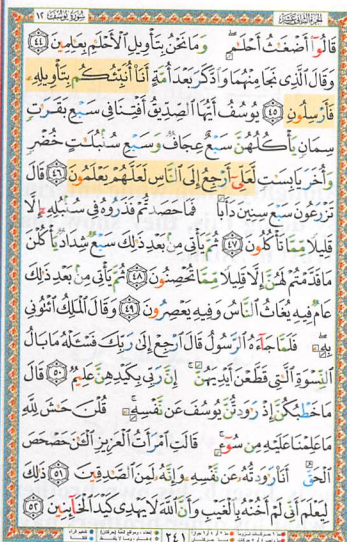 سورة يوسف ١٢
الجزء الثاني عشر
قَالُوٓاْ أَضْغَٰثُ أَحْلَٰمٍۖ وَمَا نَحْنُ بِتَأْوِيلِ ٱلْأَحْلَٰمِ بِعَٰلِمِينَ ٤٤
وَقَالَ ٱلَّذِى نَجَا مِنْهُمَا وَٱدَّكَرَ بَعْدَ أُمَّةٍ أَنَا۠ أُنَبِّئُكُم بِتَأْوِيلِهِۦ
فَأَرْسِلُونِ ٤٥ يُوسُفُ أَيُّهَا ٱلصِّدِّيقُ أَفْتِنَا فِى سَبْعِ بَقَرَٰتٍ
سِمَانٍ يَأْكُلُهُنَّ سَبْعٌ عِجَافٌ وَسَبْعِ سُنۢبُلَٰتٍ خُضْرٍ
وَأُخَرَ يَابِسَٰتٍ لَّعَلِّىٓ أَرْجِعُ إِلَى ٱلنَّاسِ لَعَلَّهُمْ يَعْلَمُونَ ٤٦ قَالَ
تَزْرَعُونَ سَبْعَ سِنِينَ دَأَبًا فَمَا حَصَدتُّمْ فَذَرُوهُ فِى سُنۢبُلِهِۦٓ إِلَّا
قَلِيلًا مِّمَّا تَأْكُلُونَ ٤٧ ثُمَّ يَأْتِى مِنۢ بَعْدِ ذَٰلِكَ سَبْعٌ شِدَادٌ يَأْكُلْنَ
مَا قَدَّمْتُمْ لَهُنَّ إِلَّا قَلِيلًا مِّمَّا تُحْصِنُونَ ٤٨ ثُمَّ يَأْتِى مِنۢ بَعْدِ ذَٰلِكَ
عَامٌ فِيهِ يُغَاثُ ٱلنَّاسُ وَفِيهِ يَعْصِرُونَ ٤٩ وَقَالَ ٱلْمَلِكُ ٱئْتُونِى
بِهِۦۖ فَلَمَّا جَآءَهُ ٱلرَّسُولُ قَالَ ٱرْجِعْ إِلَىٰ رَبِّكَ فَسْـَٔلْهُ مَا بَالُ
ٱلنِّسْوَةِ ٱلَّٰتِى قَطَّعْنَ أَيْدِيَهُنَّۚ إِنَّ رَبِّى بِكَيْدِهِنَّ عَلِيمٌ ٥٠ قَالَ
مَا خَطْبُكُنَّ إِذْ رَٰوَدتُّنَّ يُوسُفَ عَن نَّفْسِهِۦۚ قُلْنَ حَٰشَ لِلَّهِ
مَا عَلِمْنَا عَلَيْهِ مِن سُوٓءٍۚ قَالَتِ ٱمْرَأَتُ ٱلْعَزِيزِ ٱلْـَٰٔنَ حَصْحَصَ
ٱلْحَقُّ أَنَا۠ رَٰوَدتُّهُۥ عَن نَّفْسِهِۦ وَإِنَّهُۥ لَمِنَ ٱلصَّٰدِقِينَ ٥١ ذَٰلِكَ
لِيَعْلَمَ أَنِّى لَمْ أَخُنْهُ بِٱلْغَيْبِ وَأَنَّ ٱللَّهَ لَا يَهْدِى كَيْدَ ٱلْخَآئِنِينَ ٥٢
٢٤١